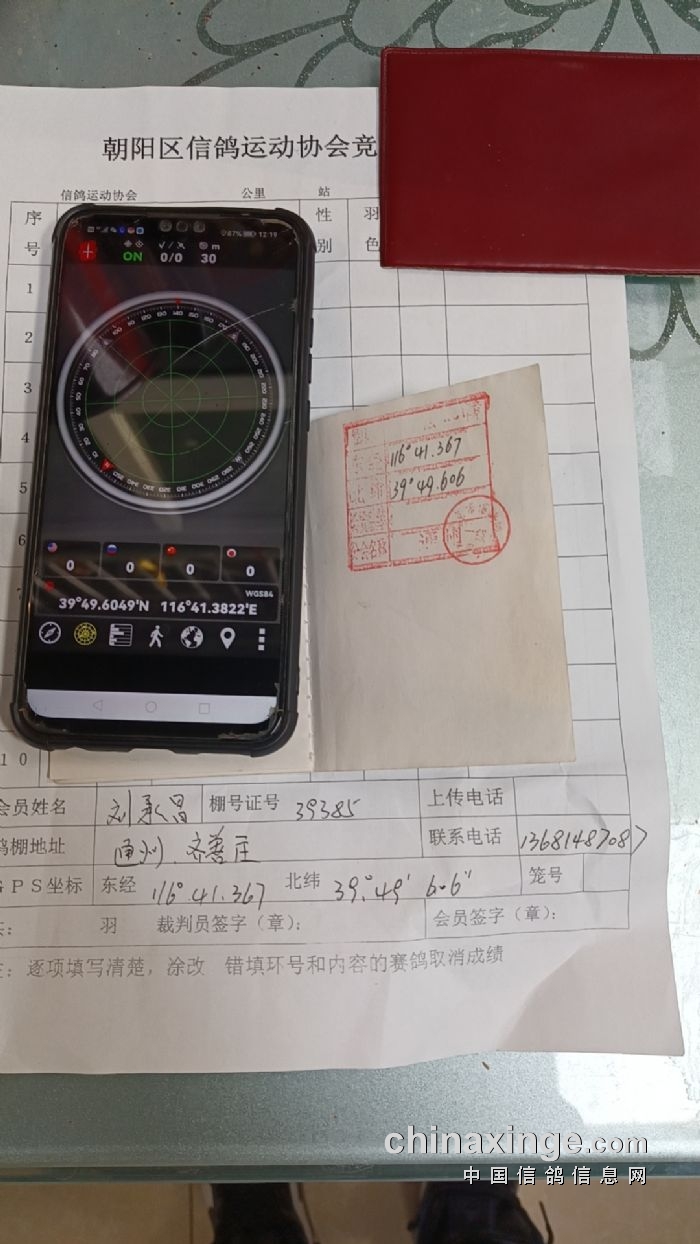 朝阳区信鸽运动协会竞
信鸽运动协会 公里 站
序号 性别 羽色
1
2
3
4
5
6
10
87% 12:19
ON 0/0 30 m
0 0 0 0
WGS84
39°49.6049'N 116°41.3822'E
116°41.367
39°49.606
会员姓名 刘永昌 棚号证号 39385 上传电话
鸽棚地址 通州.齐善庄 联系电话 13681487087
GPS坐标 东经 116°.41.367 北纬 39°.49' 6.6" 笼号
羽 裁判员签字(章): 会员签字(章):
逐项填写清楚,涂改 错填环号和内容的赛鸽取消成绩
chinaxinge.com
中国信鸽信息网